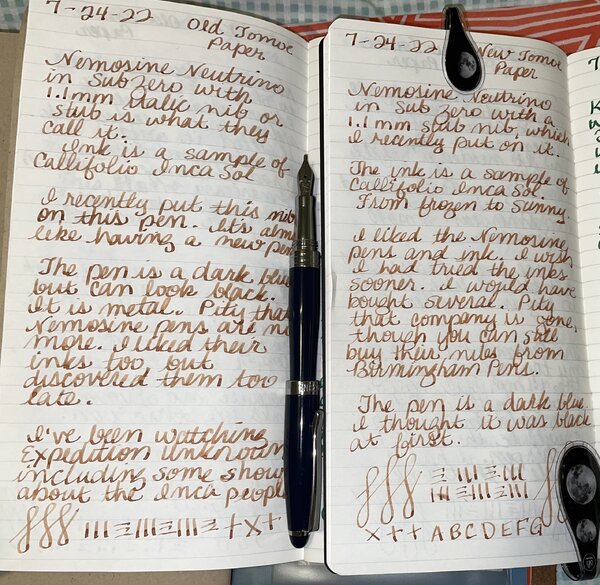 7-24-22
Old Tomoe
Paper
Nemosine Neutrino
in Sub Zero with
1.1mm Italic nib or
stub is what they
call it.
Ink is a sample of
Callifolio Inca Sol
I recently put this nib
on this pen. It's
like having a new pen
The pen is a dark blue
but can look black.
It is metal. Pity that
Nemosine pens are no
more. I liked their
inks too but
discovered them too
late.
I've been watching
Expedition Unknown
including some
about the Inca people
7-24-22
New Tomoe
Paper
Nemosine Neutrino
in Sub Zero with a
1.1mm stub nib, which
I recently put on it.
The ink is a sample of
Callifolio Inca Sol.
From frozen to Sunny.
I liked the Nemosine
pens and ink. I wish
I had tried the inks
sooner. I would have
bought several. Pity
that company is gone,
though you can still
buy their nibs from
Birmingham Pens.
The pen is a dark blue.
I thought it was black
at first.
X++ ABCDEFG